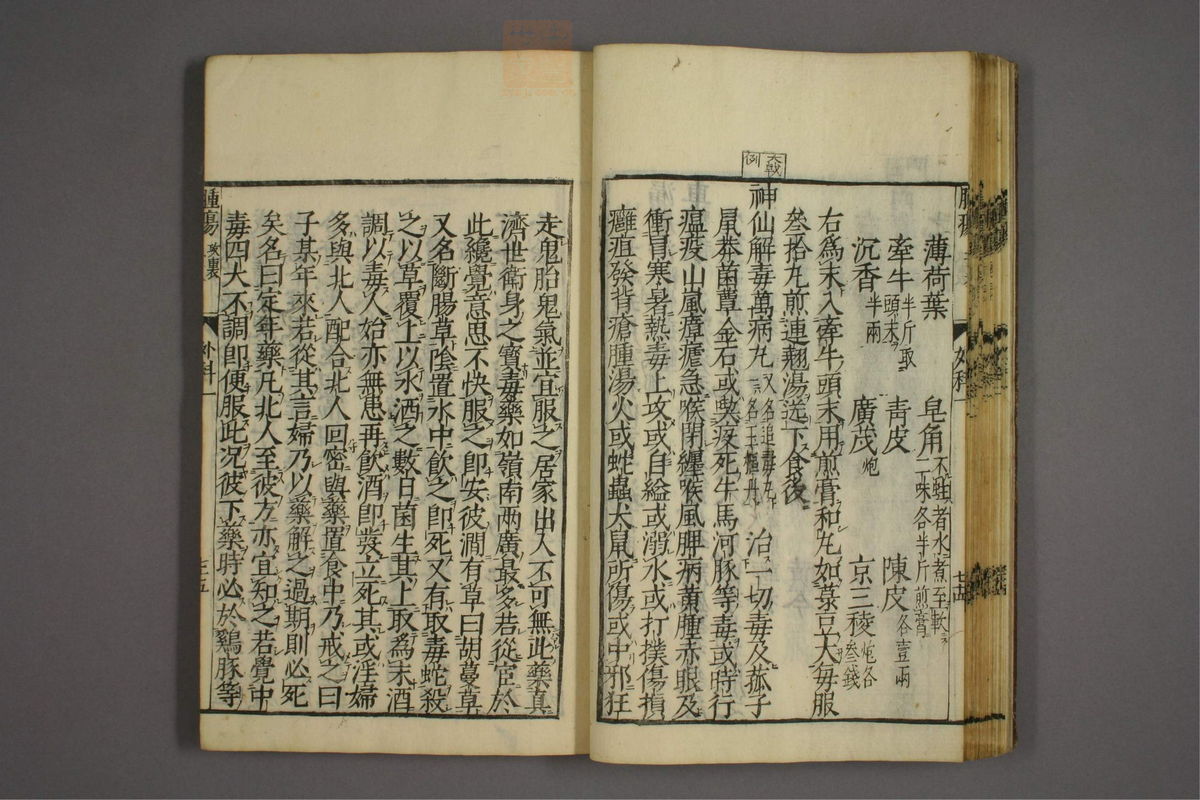 大戟
例
薄荷葉 皂角不蛀者水煮至軟二味各半斤煎膏
牽牛半斤取頭末 青皮 陳皮各壹兩
沉香半兩 廣茂炮 京三稜炮各叁錢
右為末入牽牛頭末用前膏和丸如菉豆大每服
叁拾丸煎連翹湯送下食後
神仙解毒萬病丸又名追毒丸一名玉樞丹 治一切毒及菰子
鼠莽菌蕈金石或喫疫死牛馬河豚等毒或時行
瘟疫山嵐瘴瘧急喉閉纏喉風脾病黃腫赤眼及
衝冒寒暑熱毒上攻或自縊或溺水或打撲傷損
癰疽發背瘡腫湯火或蛇蟲犬鼠所傷或中邪狂
走鬼胎鬼氣並宜服之居家出入不可無此藥真
濟世衛身之寶毒藥如嶺南兩廣最多若從宦於
此纔覺意思不快服之即安彼澗有草曰胡蔓草
又名斷腸草陰置水中飲之即死又有取毒蛇殺
之以草覆上以水酒之數日菌生其上取為末酒
調以毒人始亦無患再飲酒即發立死其或淫婦
多與北人配合北人回密與藥置食中乃戒之曰
子某年來若從其言婦乃以藥解之過期則必死
矣名曰定年藥凡北人至彼方亦宜知之若覺中
毒四大不調即便服此况彼下藥時必於鷄豚等
腫瘍 攻裏 外科一